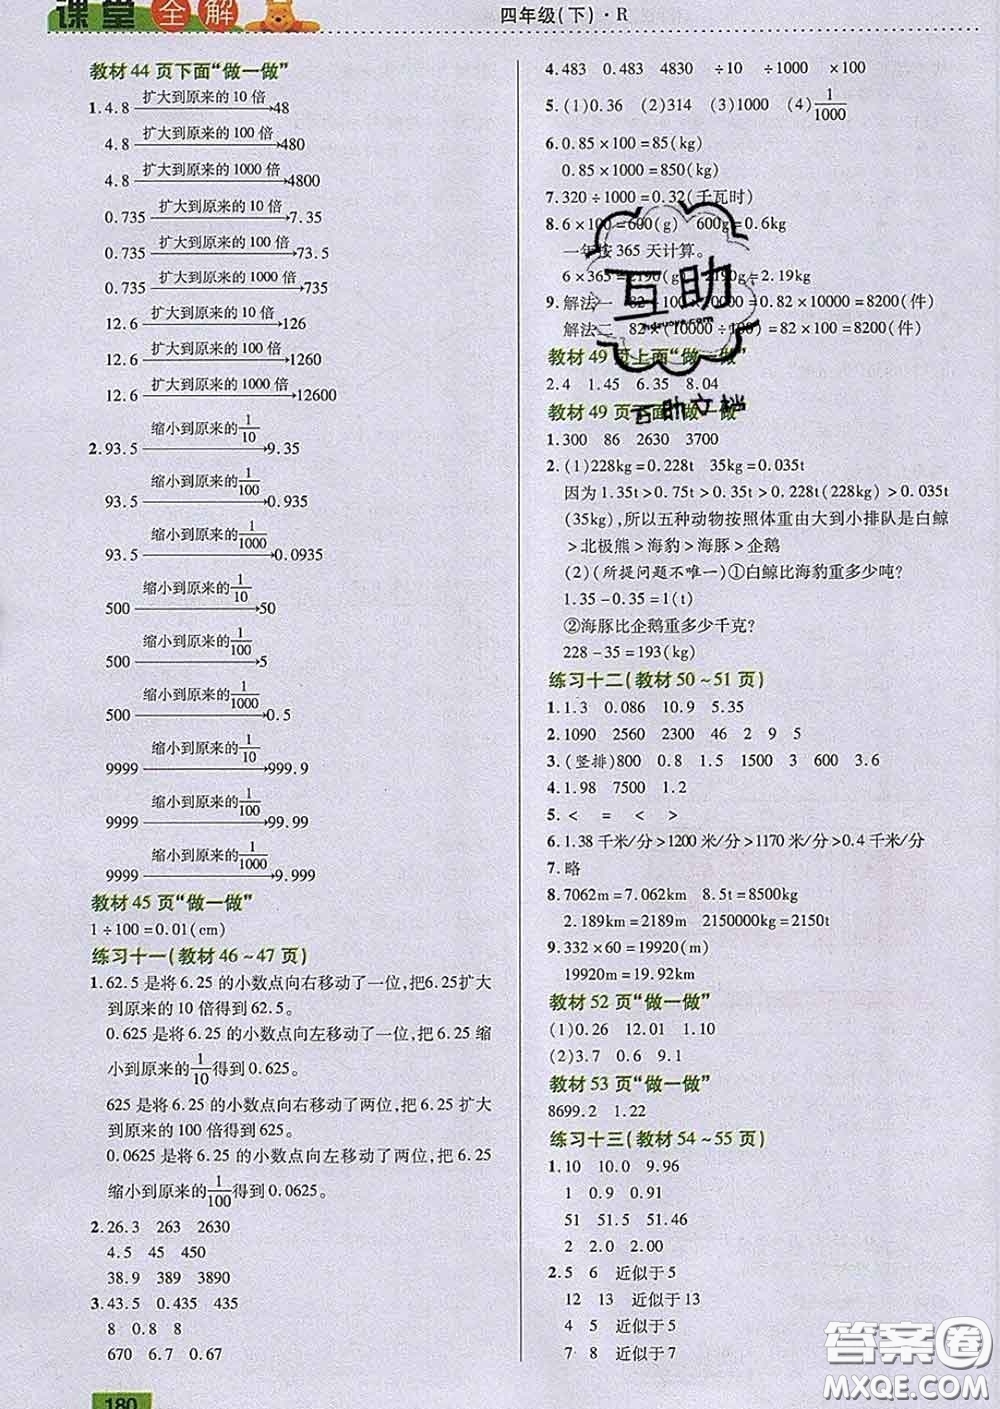 课堂全解
四年级(下)·R
教材44页下面“做一做”
1.4.8 扩大到原来的10倍 48
4.8 扩大到原来的100倍 480
4.8 扩大到原来的1000倍 4800
0.735 扩大到原来的10倍 7.35
0.735 扩大到原来的100倍 73.5
0.735 扩大到原来的1000倍 735
12.6 扩大到原来的10倍 126
12.6 扩大到原来的100倍 1260
12.6 扩大到原来的1000倍 12600
2.93.5 缩小到原来的1/10 9.35
93.5 缩小到原来的1/100 0.935
93.5 缩小到原来的1/1000 0.0935
500 缩小到原来的1/10 50
500 缩小到原来的1/100 5
500 缩小到原来的1/1000 0.5
9999 缩小到原来的1/10 999.9
9999 缩小到原来的1/100 99.99
9999 缩小到原来的1/1000 9.999
教材45页“做一做”
1÷100=0.01(cm)
练习十一(教材46~47页)
1.62.5是将6.25的小数点向右移动了一位,把6.25扩大
到原来的10倍得到62.5。
0.625是将6.25的小数点向左移动了一位,把6.25缩
小到原来的1/10得到0.625。
625是将6.25的小数点向右移动了两位,把6.25扩大
到原来的100倍得到625。
0.0625是将6.25的小数点向左移动了两位,把6.25
缩小到原来的1/100得到0.0625。
2.26.3 263 2630
4.5 45 450
38.9 389 3890
3.43.5 0.435 435
8 0.8 8
670 6.7 0.67
180
4.483 0.483 4830 ÷10 ÷1000 ×100
5.(1)0.36 (2)314 (3)1000 (4)1/1000
6.0.85×100=85(kg)
0.85×1000=850(kg)
7.320÷1000=0.32(千瓦时)
8.6×100=600(g) 600g=0.6kg
一年按365天计算。
6×365=2190(g) 2190g=2.19kg
9.解法一 82÷100×10000=0.82×10000=8200(件)
解法二 82×(10000÷100)=82×100=8200(件)
教材49页上面“做一做”
2.4 1.45 6.35 8.04
教材49页下面“做一做”
1.300 86 2630 3700
2.(1)228kg=0.228t 35kg=0.035t
因为1.35t>0.75t>0.35t>0.228t(228kg)>0.035t
(35kg),所以五种动物按照体重由大到小排队是白鲸
>北极熊>海豹>海豚>企鹅
(2)(所提问题不唯一)①白鲸比海豹重多少吨?
1.35-0.35=1(t)
②海豚比企鹅重多少千克?
228-35=193(kg)
练习十二(教材50~51页)
1.1.3 0.086 10.9 5.35
2.1090 2560 2300 46 2 9 5
3.(竖排)800 0.8 1.5 1500 3 600 3.6
4.1.98 7500 1.2
5.< = < >
6.1.38千米/分>1200米/分>1170米/分>0.4千米/分
7.略
8.7062m=7.062km 8.5t=8500kg
2.189km=2189m 2150000kg=2150t
9.332×60=19920(m)
19920m=19.92km
教材52页“做一做”
(1)0.26 12.01 1.10
(2)3.7 0.6 9.1
教材53页“做一做”
8699.2 1.22
练习十三(教材54~55页)
1.10 10.0 9.96
1 0.9 0.91
51 51.5 51.46
2 2.0 2.00
2.5 6 近似于5
12 13 近似于13
4 5 近似于5
7 8 近似于7
互助
互助文档
答案圈
MXQE.COM